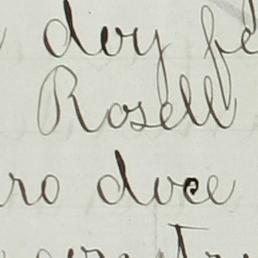 doy fe
Rosell
ro doce